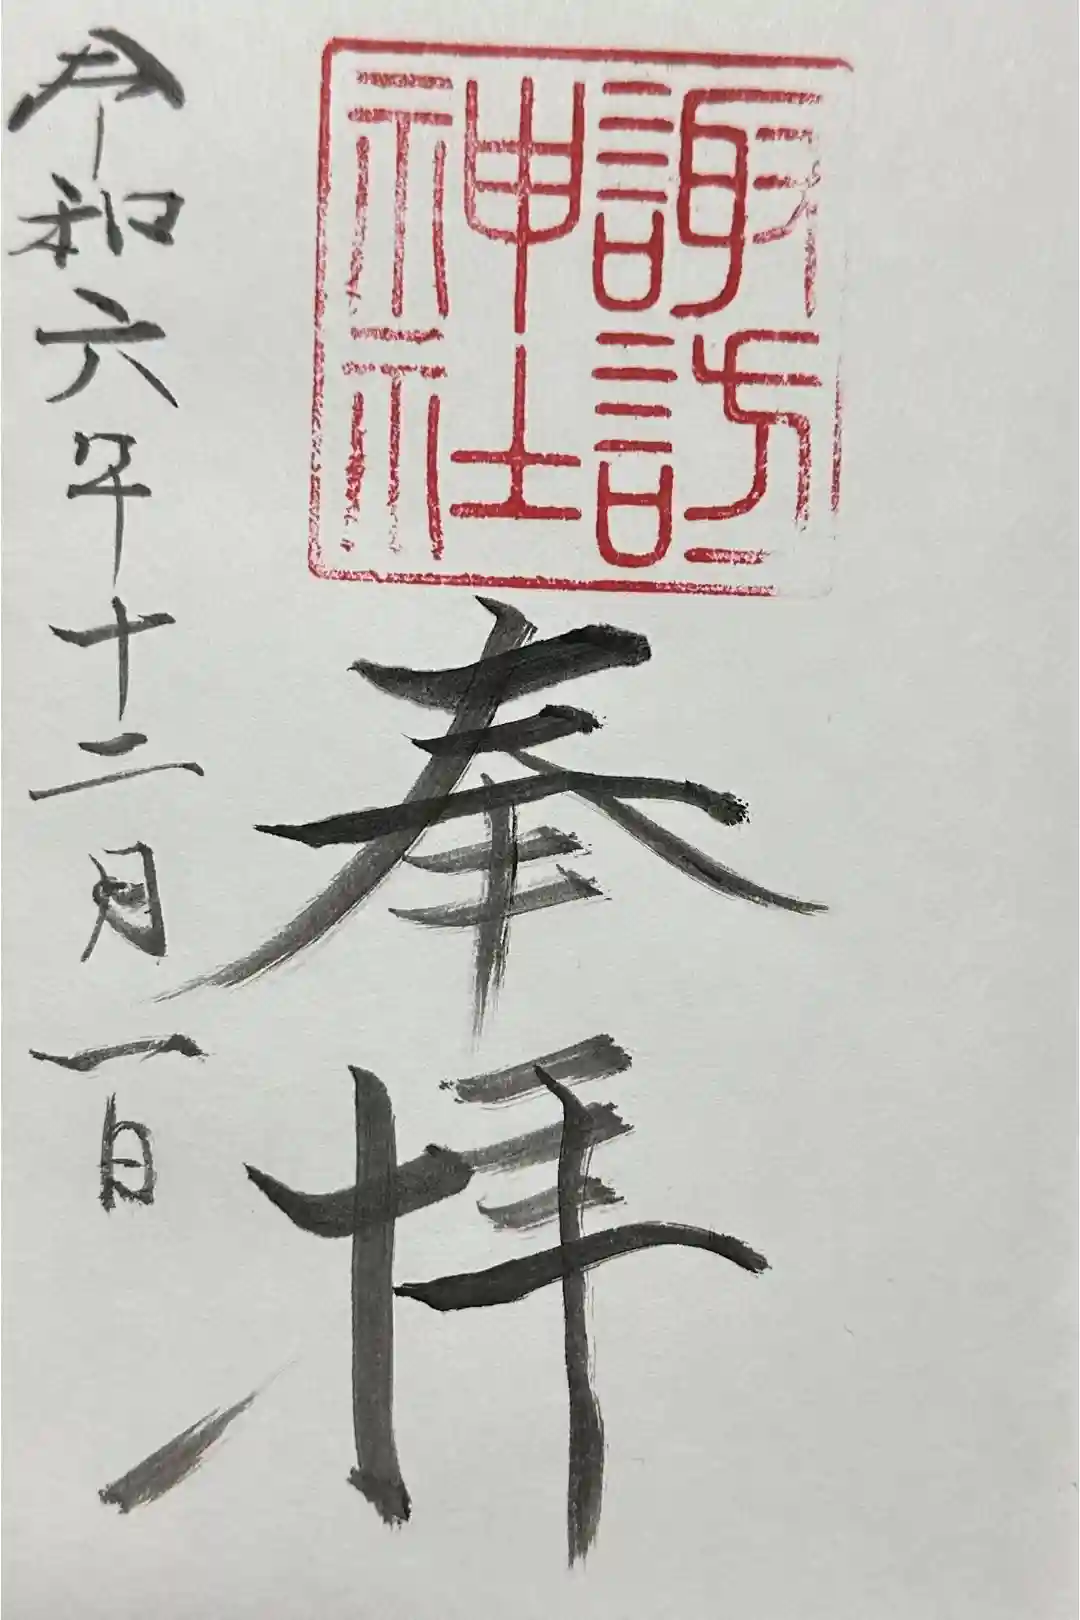 諏訪
神社
奉拝
令和六年十二月一日